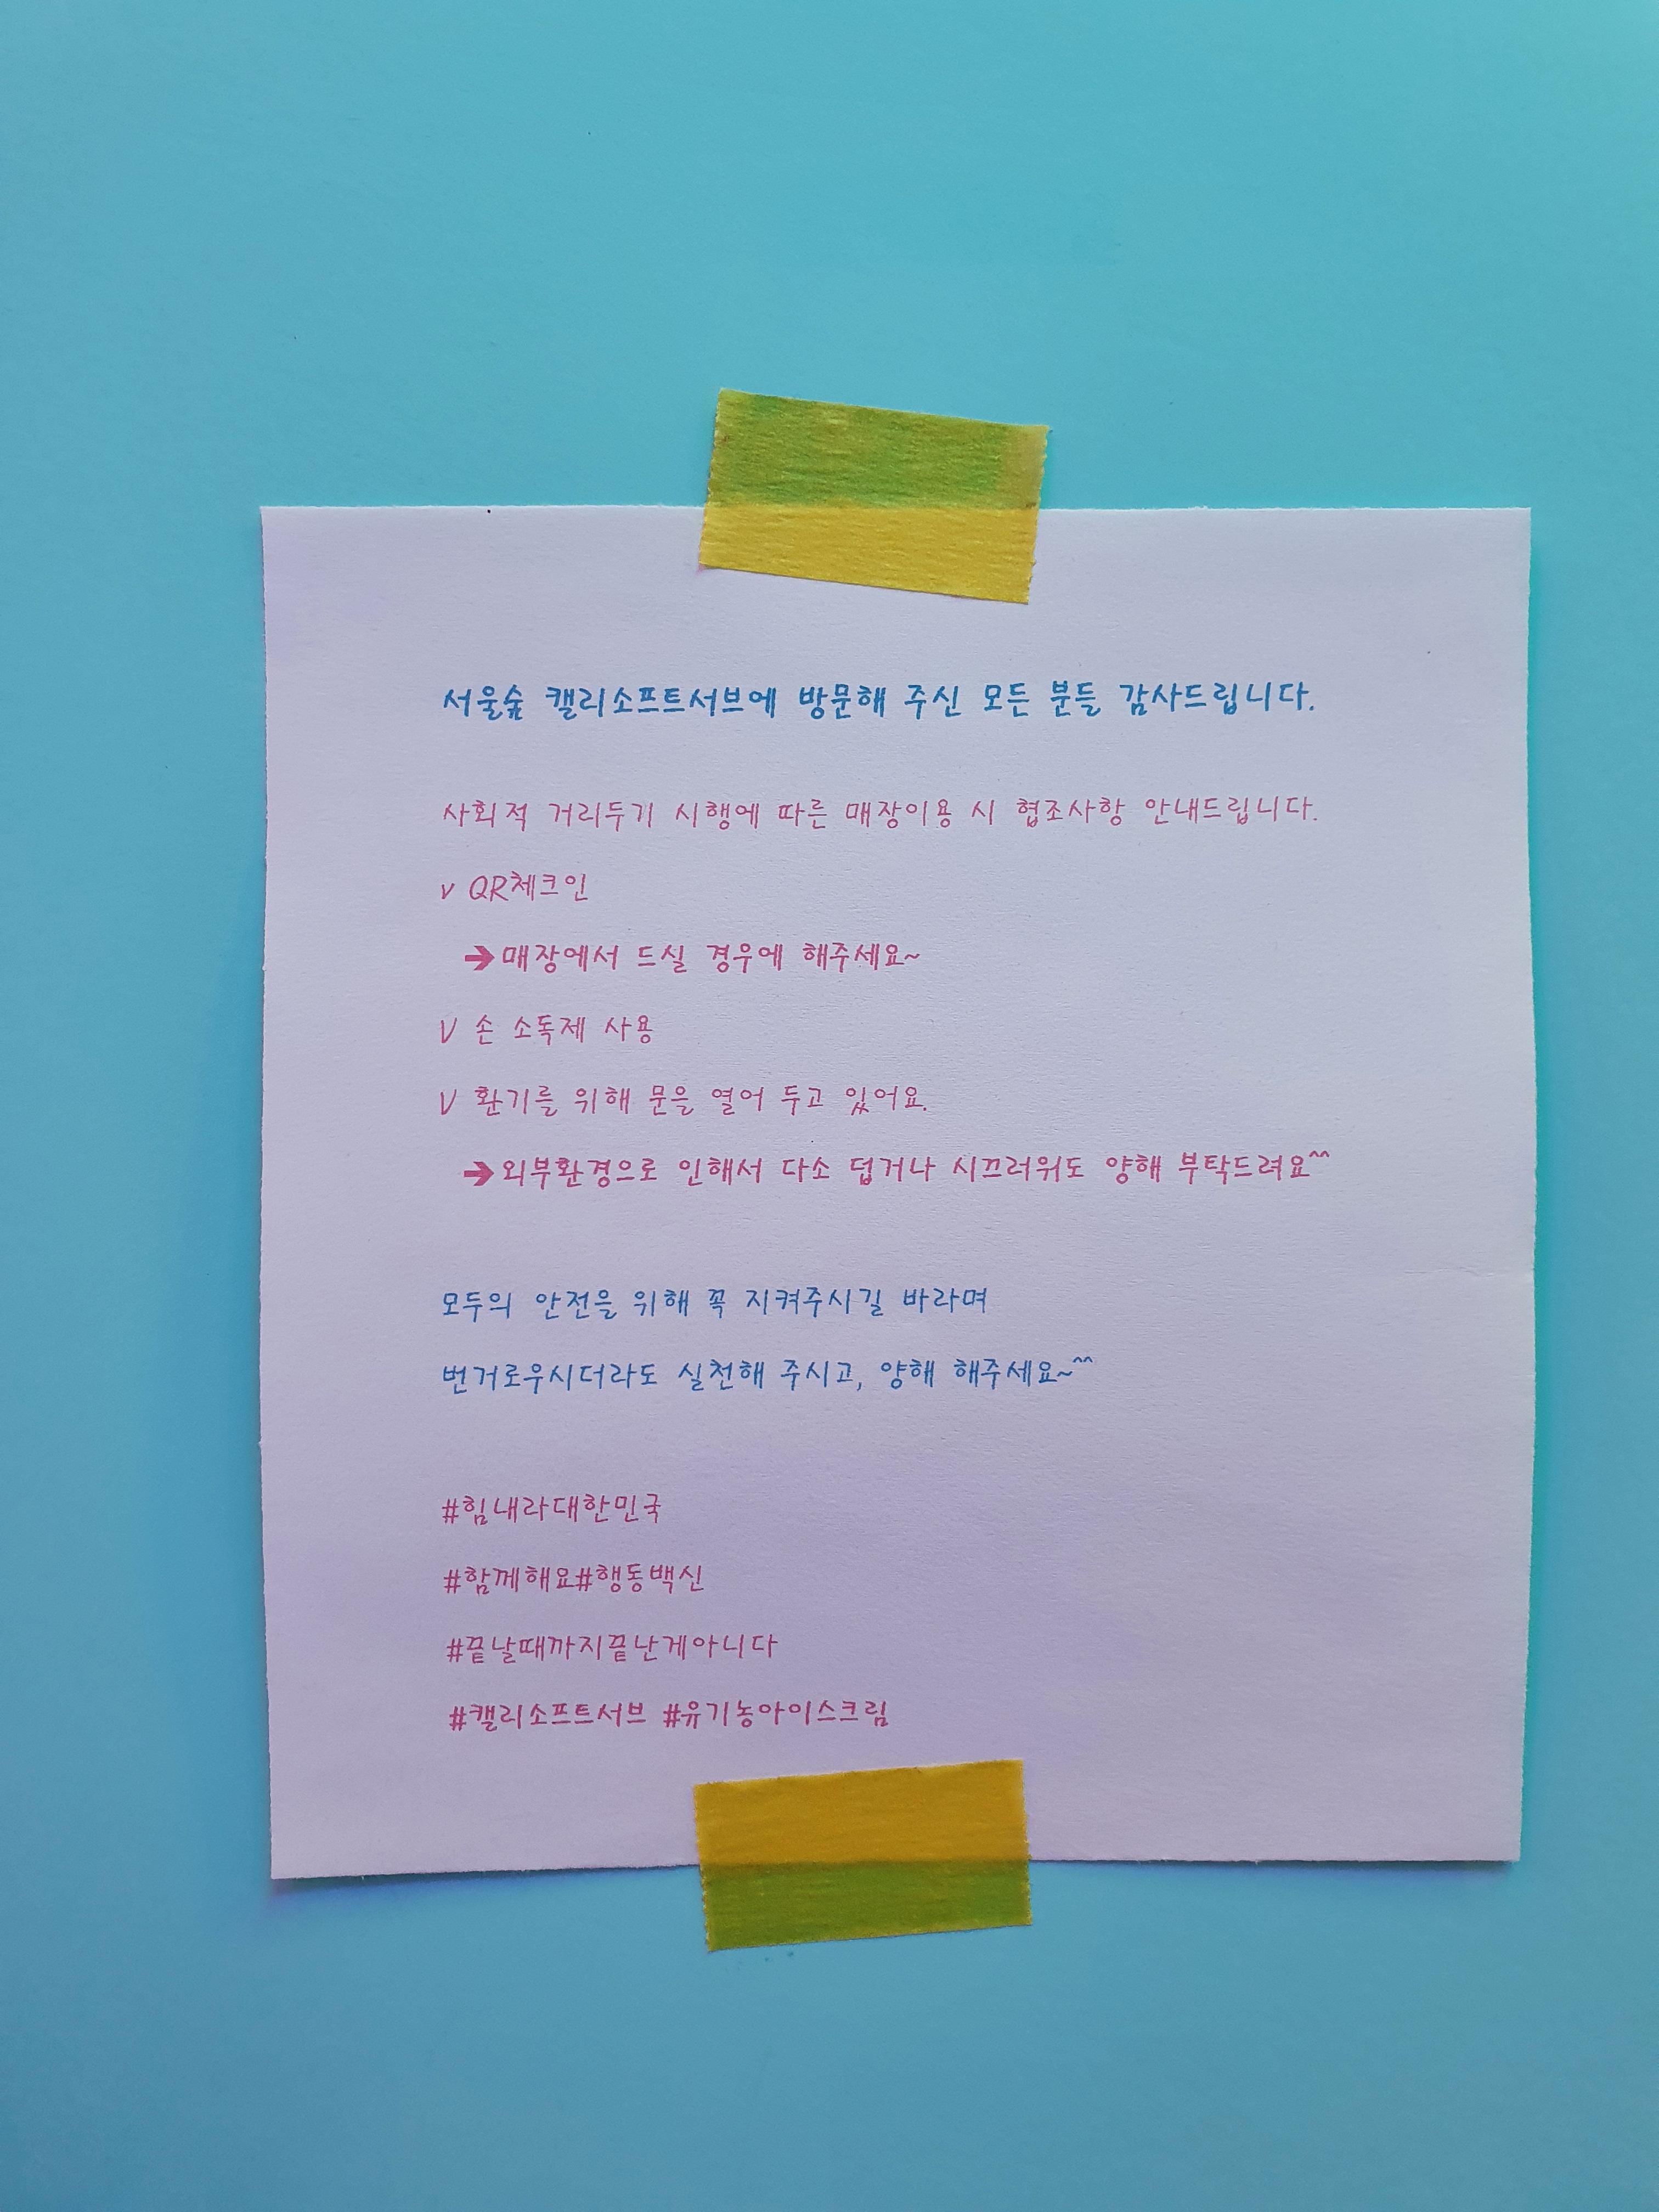 서울숲 캘리소프트서브에 방문해 주신 모든 분들 감사드립니다.
사회적 거리두기 시행에 따른 매장이용 시 협조사항 안내드립니다.
v QR체크인
➔매장에서 드실 경우에 해주세요~
V 손 소독제 사용
V 환기를 위해 문을 열어 두고 있어요.
➔외부환경으로 인해서 다소 덥거나 시끄러워도 양해 부탁드려요^^
모두의 안전을 위해 꼭 지켜주시길 바라며
번거로우시더라도 실천해 주시고, 양해 해주세요~^^
#힘내라대한민국
#함께해요#행동백신
#끝날때까지끝난게아니다
#캘리소프트서브 #유기농아이스크림